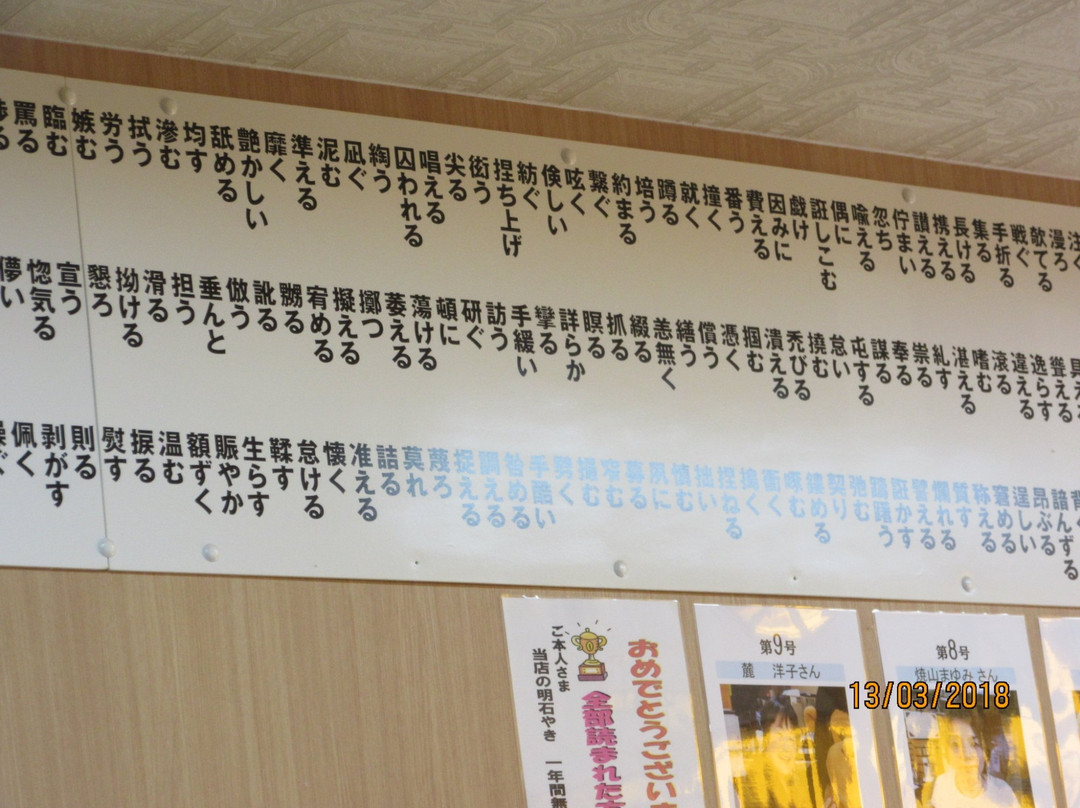 漫ろ
欹てる
戦ぐ
手折る
集る
長ける
携える
讃える
佇まい
忽ち
喩える
偶に
誣しこむ
戯け
因みに
費える
番う
撞く
就く
蹲る
培う
約まる
繋ぐ
呟く
倹しい
紡ぐ
捏ち上げ
衒う
尖る
唱える
囚われる
綯う
凪ぐ
泥む
準える
靡く
艶かしい
舐める
均す
滲む
拭う
労う
嫉む
臨む
罵る
聳える
逸らす
違える
滾る
嗜む
湛える
糺す
祟る
奉る
謀る
屯する
怠い
撓む
禿びる
潰える
掴む
憑く
償う
繕う
恙無く
綴る
抓る
瞑る
詳らか
攣る
手緩い
訪う
研ぐ
頓に
蕩ける
萎える
擲つ
擬える
宥める
嬲る
訛る
倣う
垂んと
担う
滑る
拗ける
懇ろ
宣う
惚気る
儚い
諳んずる
昂ぶる
逞しい
窘める
称える
質す
爛れる
譬える
誑かす
躊躇う
弛む
契り
鏤める
啄む
衝く
搗く
捏ねる
拙い
慎む
夙に
募る
窄む
撮む
劈く
手酷い
咎める
調える
捉える
蔑ろ
莫れ
詰る
准える
懐く
怠ける
鞣す
生らす
賑やか
額ずく
温む
捩る
熨す
則る
剥がす
佩く
おめでとうござい
全部読まれた
ご本人さま
当店の明石やき 一年間無
第9号
麓 洋子さん
第8号
焼山まゆみさん
13/03/2018